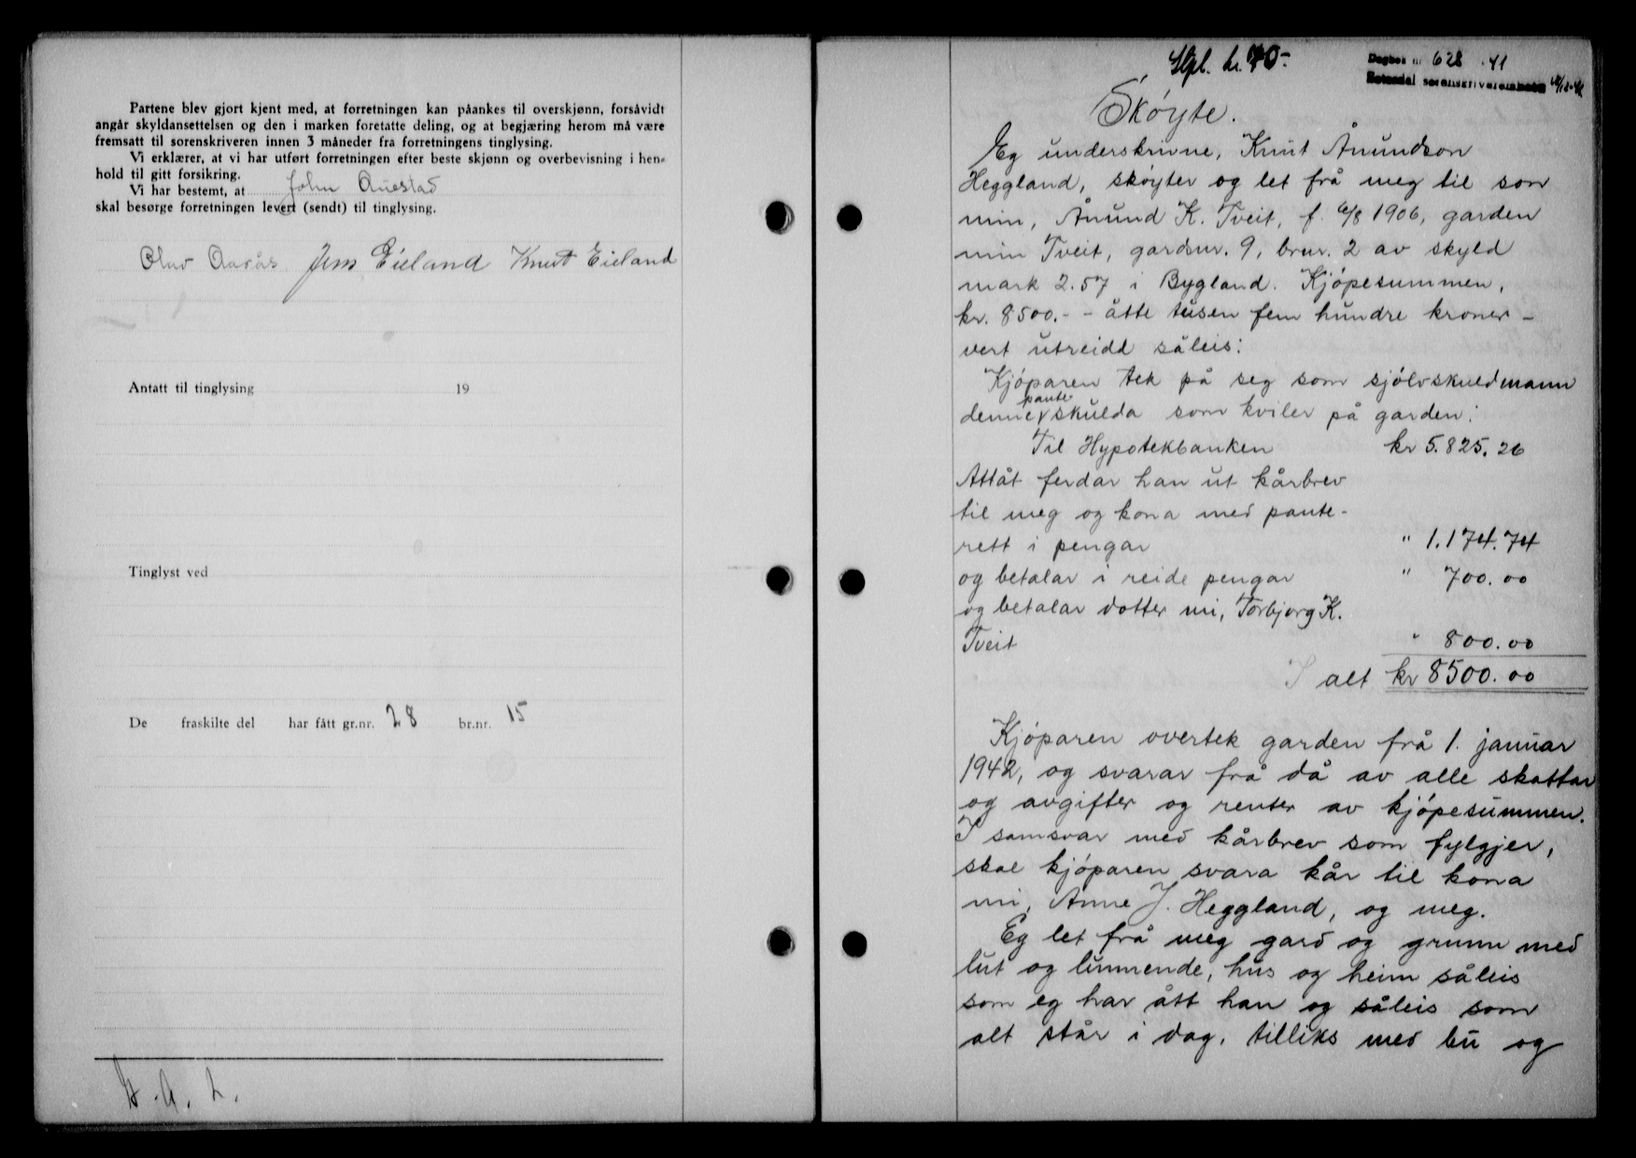 Partene blev gjort kjent med, at forretningen kan påankes til overskjønn, forsåvidt
angår skyldansettelsen og den i marken foretatte deling, og at begjæring herom må være
fremsatt til sorenskriveren innen 3 måneder fra forretningens tinglysing.
Vi erklærer, at vi har utført forretningen efter beste skjønn og overbevisning i hen-
hold til gitt forsikring.
Vi har bestemt, at John Auestad
skal besørge forretningen levert (sendt) til tinglysing.
Olav Aarås Jens Eieland Knut Eieland
Antatt til tinglysing 19
Tinglyst ved
De fraskilte del har fått gr.nr. 28 br.nr. 15
Stpl. kr. 70.-
Dagbok nr 628 41
Setesdal sorenskriverembete
Skøyte.
Eg underskrivne, Knut Ånundson
Heggland, skøyter og let frå meg til son
min, Ånund K. Tveit, f. 6/8 1906, garden
min Tveit, gardsnr. 9, brnr. 2 av skyld
mark 2.57 i Bygland. Kjøpesummen,
kr. 8500.- - åtte tusen fem hundre kroner -
vert utreidd såleis:
Kjøparen tek på seg som sjølvskuldmann
denne pante- skulda som kviler på garden:
Til Hypotekbanken kr 5.825.26
Attåt ferdar han ut kårbrev
til meg og kona med pante-
rett i pengar " 1.174.74
og betalar i reide pengar " 700.00
og betalar dotter mi, Torbjorg K.
Tveit " 800.00
I alt kr 8500.00
Kjøparen overtek garden frå 1. januar
1942, og svarar frå då av alle skattar
og avgifter og renter av kjøpesummen.
I samsvar med kårbrev som fylgjer,
skal kjøparen svara kår til kona
mi, Anne J. Heggland, og meg.
Eg let frå meg gard og grunn med
lut og lunnende, hus og heim såleis
som eg har ått han og såleis som
alt står i dag, tilliks med bu og